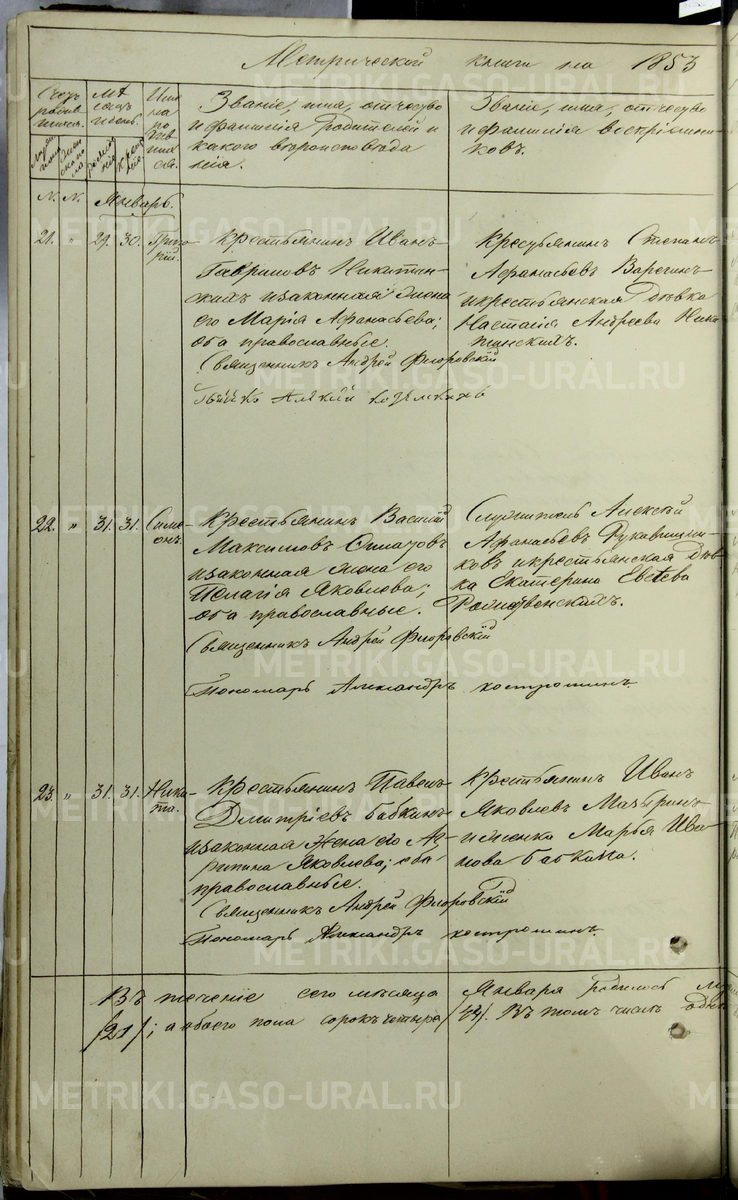 Метрической книги на 1853
Счетъ родившихся.
Мѣсяцъ и день.
Имена родившихся.
Званіе, имя, отчество и фамилія родителей и какого вѣроисповѣданія.
Званіе, имя, отчество и фамилія воспріемниковъ.
N. N. Январь.
21. „ 29. 30. Григорій.
Крестьянинъ Иванъ
Гавриловъ Никитинскихъ
и законная жена
его Марія Афанасьева;
оба православные.
Крестьянинъ Степанъ
Афанасьевъ Варегинъ
и крестьянская дѣвка
Настасія Андреева Никитинскихъ.
Священникъ Андрей Флоровскій
22. „ 31. 31. Симеонъ.
Крестьянинъ Василій
Максимовъ
и законная жена его
Пелагія Яковлева;
оба православные.
Служитель Алексѣй
Афанасьевъ Рукавишниковъ
и крестьянская дѣвка
Екатерина Евсѣева
Рождественскихъ.
Священникъ Андрей Флоровскій
Пономарь Александръ Костроминъ.
23. „ 31. 31. Никита.
Крестьянинъ Павелъ
Дмитріевъ Бабкинъ
и законная жена его Агрипина
Яковлева; оба
православные.
Крестьянинъ Иванъ
Яковлевъ Мазыринъ
и женка Марья Иванова
Бабкина.
Священникъ Андрей Флоровскій
Пономарь Александръ Костроминъ.
Въ теченіе сего мѣсяца Января родилось
/21/; а обоего пола сорокъ четыре /44/. Въ томъ числѣ
METRIKI.GASO-URAL.RU